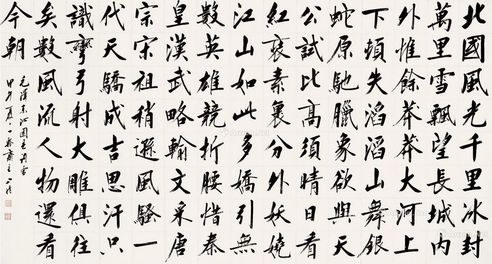 北國風光千里冰封
萬里雪飄望長城內
外惟餘莽莽大河上
下頓失滔滔山舞銀
蛇原馳臘象欲與天
公試比高須晴日看
紅裝素裹分外妖嬈
江山如此多嬌引無
數英雄競折腰惜秦
皇漢武略輸文采唐
宗宋祖稍遜風騷一
代天驕成吉思汗只
識彎弓射大雕俱往
矣數風流人物還看
今朝
毛澤東沁園春詞雪
甲午夏